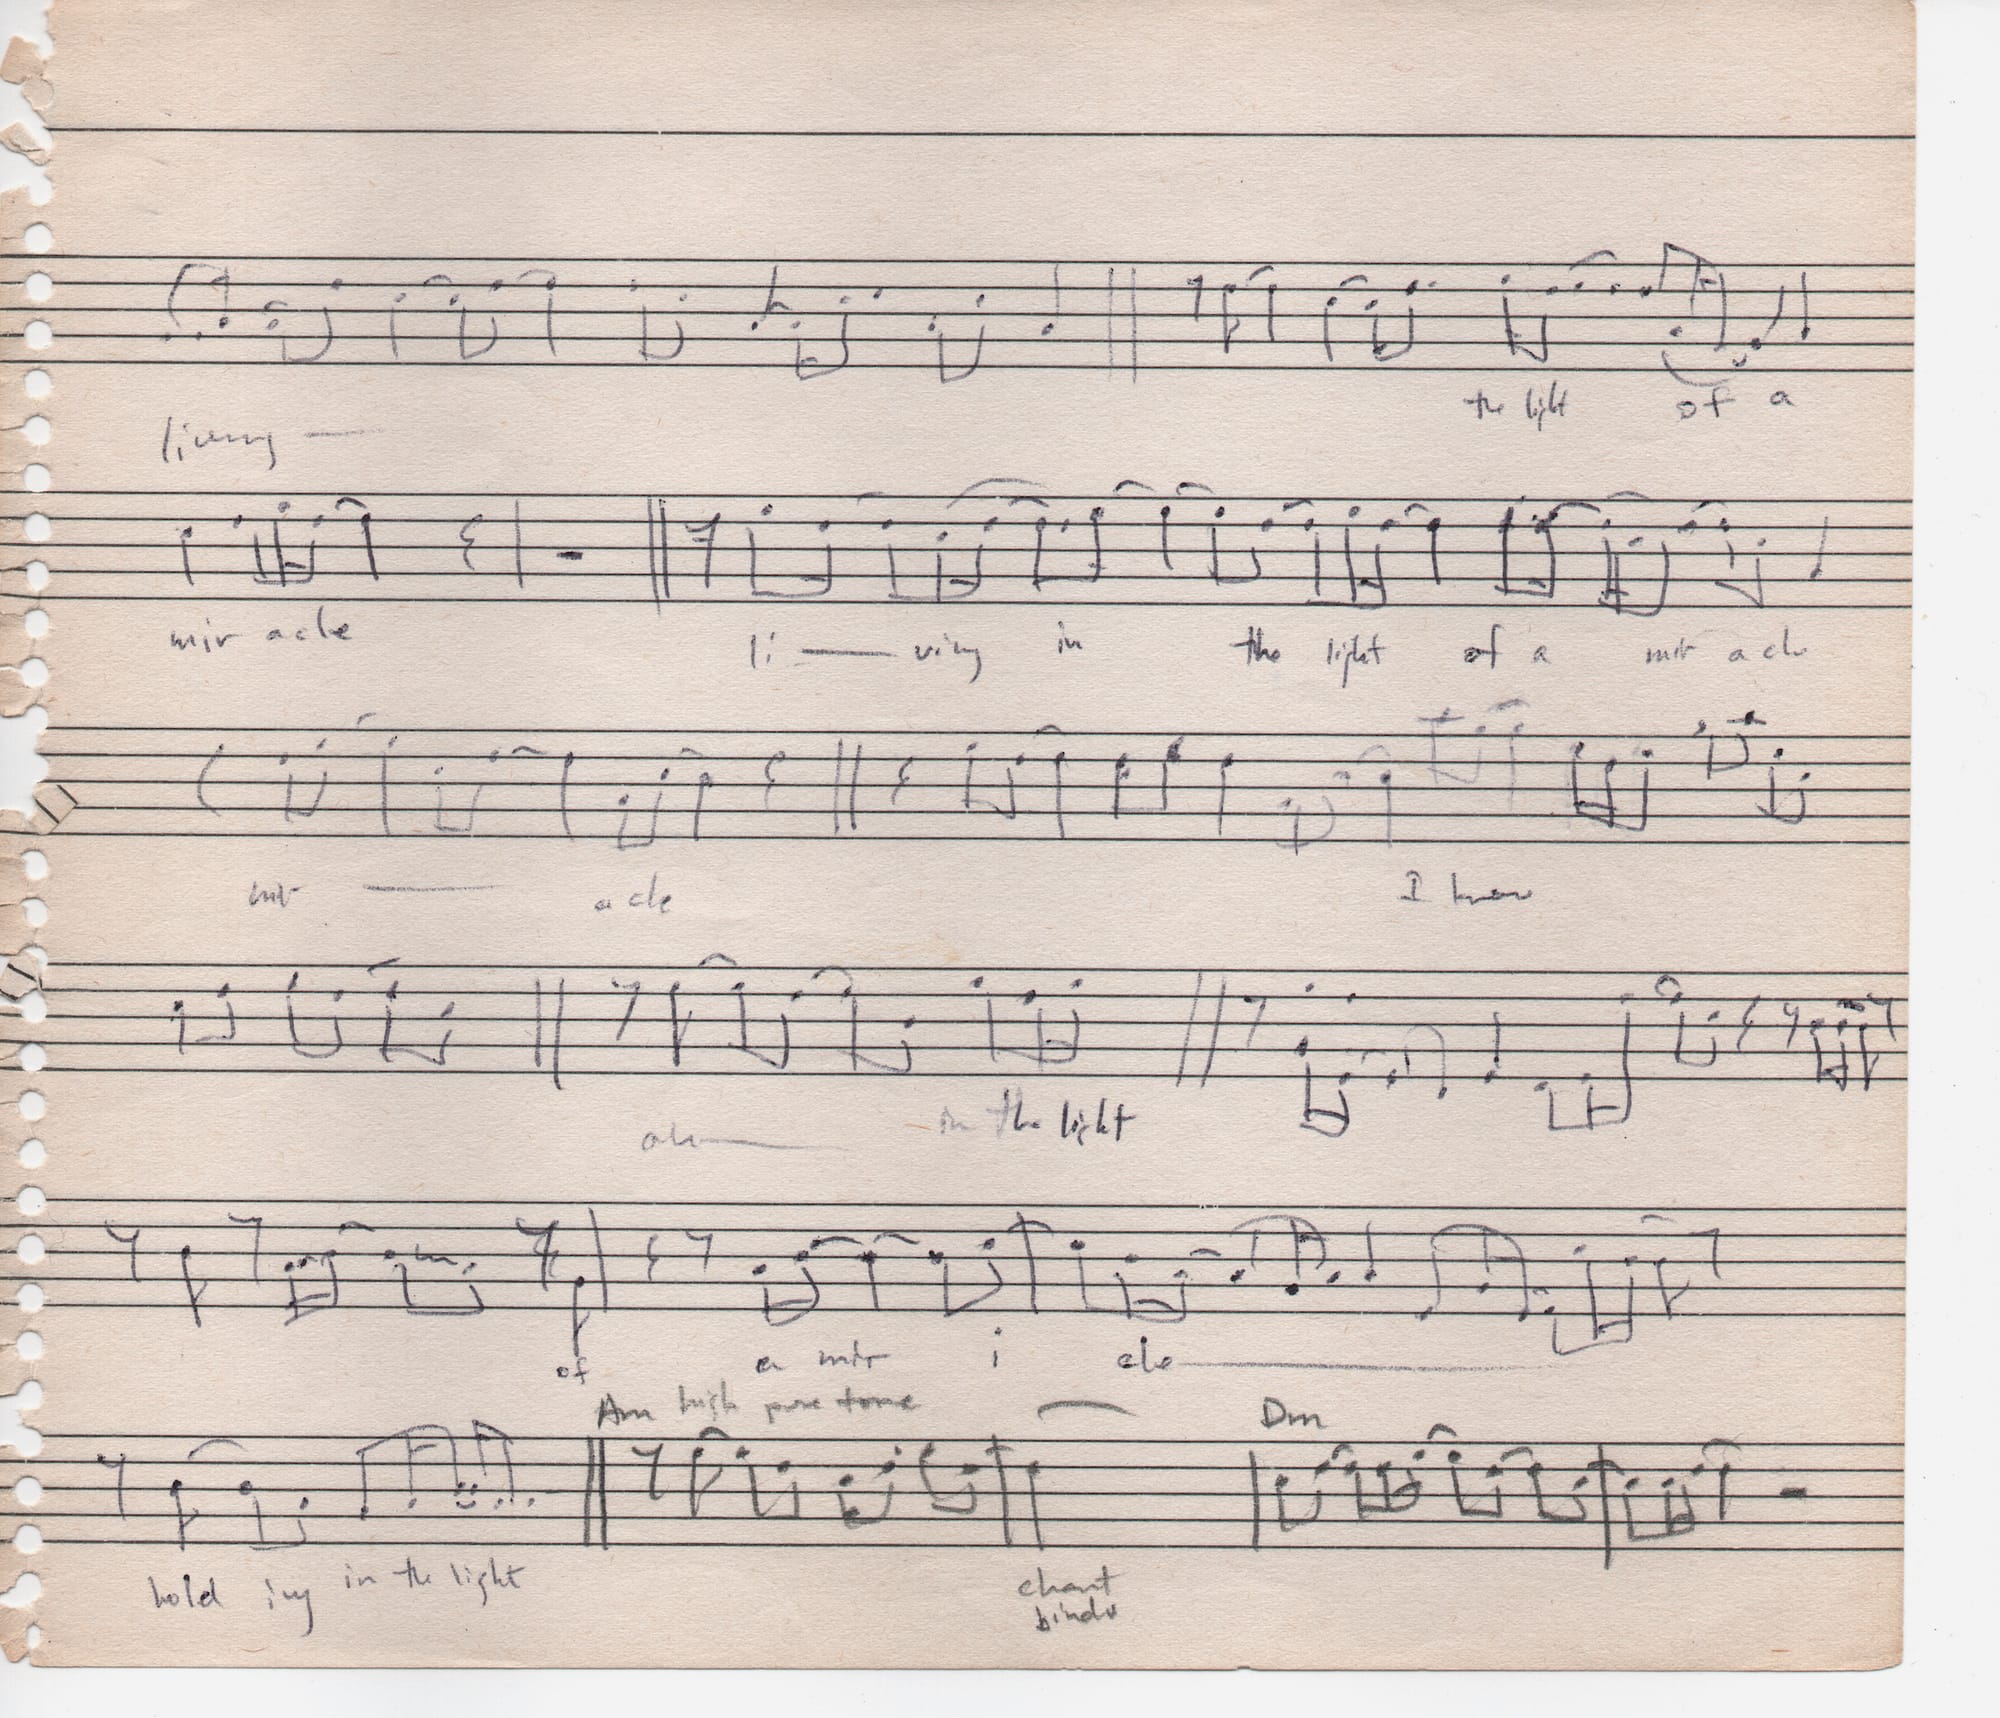 the light of a
living —
mir acle
li — ving in the light of a mir acle
mir — acle I know
ah — in the light
of a mir i cle
Am high pure tone Dm
hold ing in the light
chant
bindu